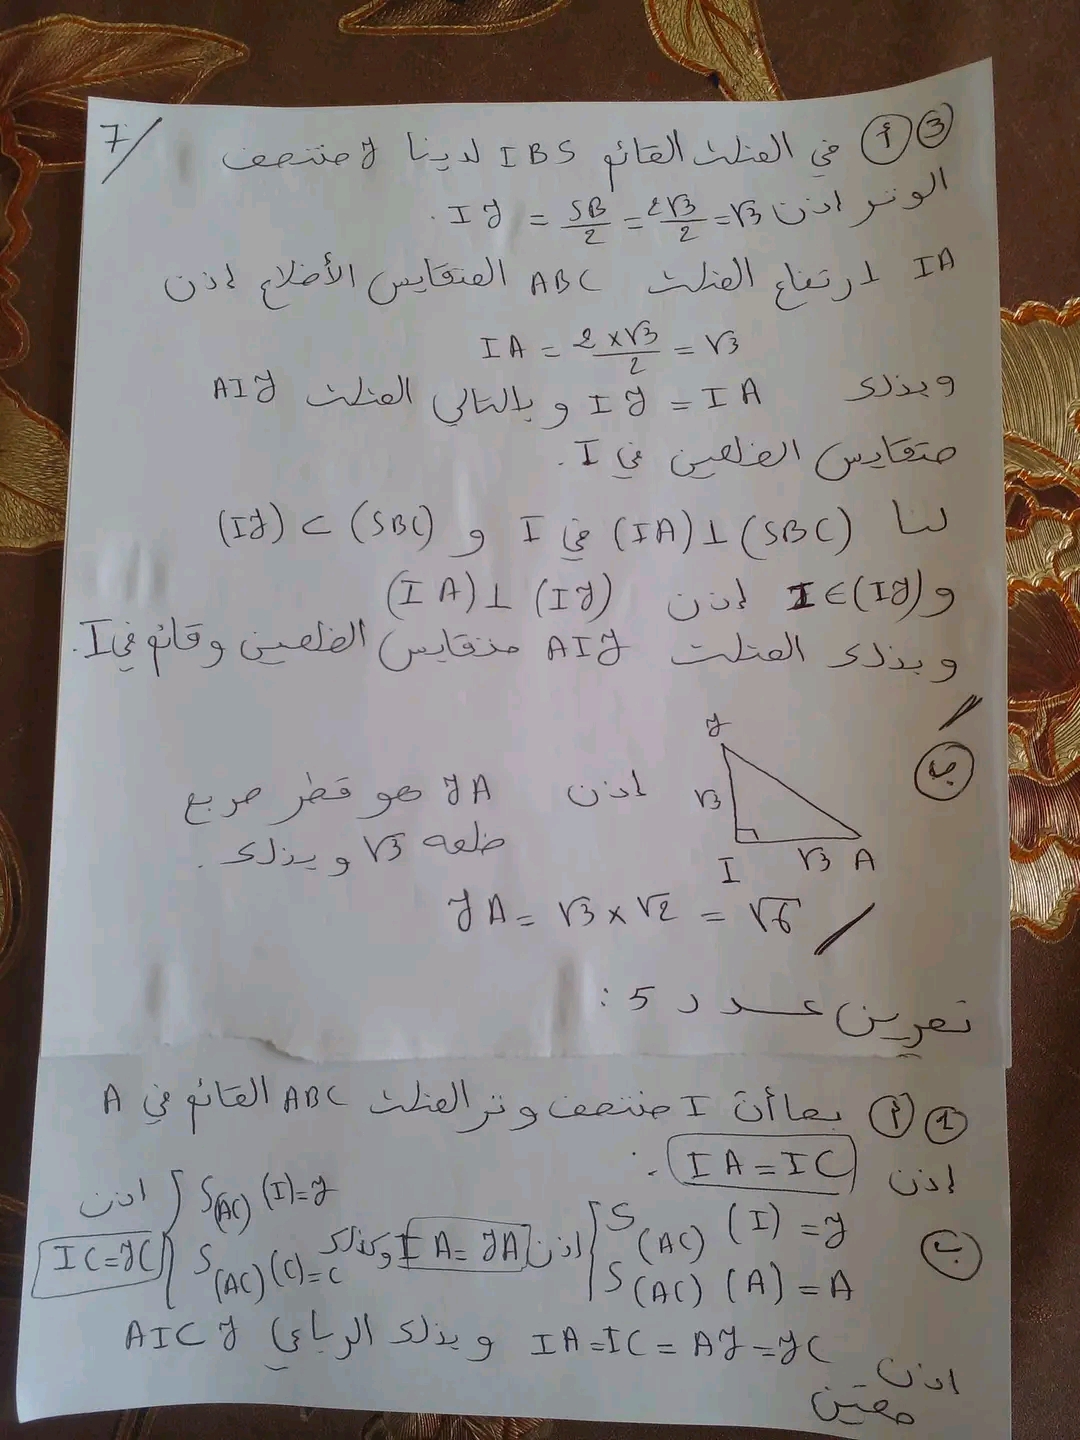 7/
③ أ) في المثلث القائم IBS لدينا J منتصف
الوتر اذن IJ = SB/2 = 2√3/2 = √3 .
IA ارتفاع المثلث ABC المتقايس الأضلاع إذن
IA = 2×√3/2 = √3
وبذلك IJ = IA وبالتالي المثلث AIJ
متقايس الضلعين في I.
لنا (IA)⊥(SBC) في I و (IJ) ⊂ (SBC)
و I∈(IJ) إذن (IA)⊥(IJ)
وبذلك المثلث AIJ متقايس الضلعين وقائم في I.
ب)
J
√3
I √3 A
اذن JA هو قطر مربع
ضلعه √3 وبذلك .
JA = √3 × √2 = √6
تمرين عدد 5 :
① أ) بما أنّ I منتصف وتر المثلث ABC القائم في A
إذن IA = IC .
ب) { S(AC) (I) = J
S(AC) (A) = A اذن IA = JA وكذلك
{ S(AC) (I) = J
S(AC) (C) = C اذن IC = JC
اذن IA = IC = AJ = JC وبذلك الرباعي AICJ
معين